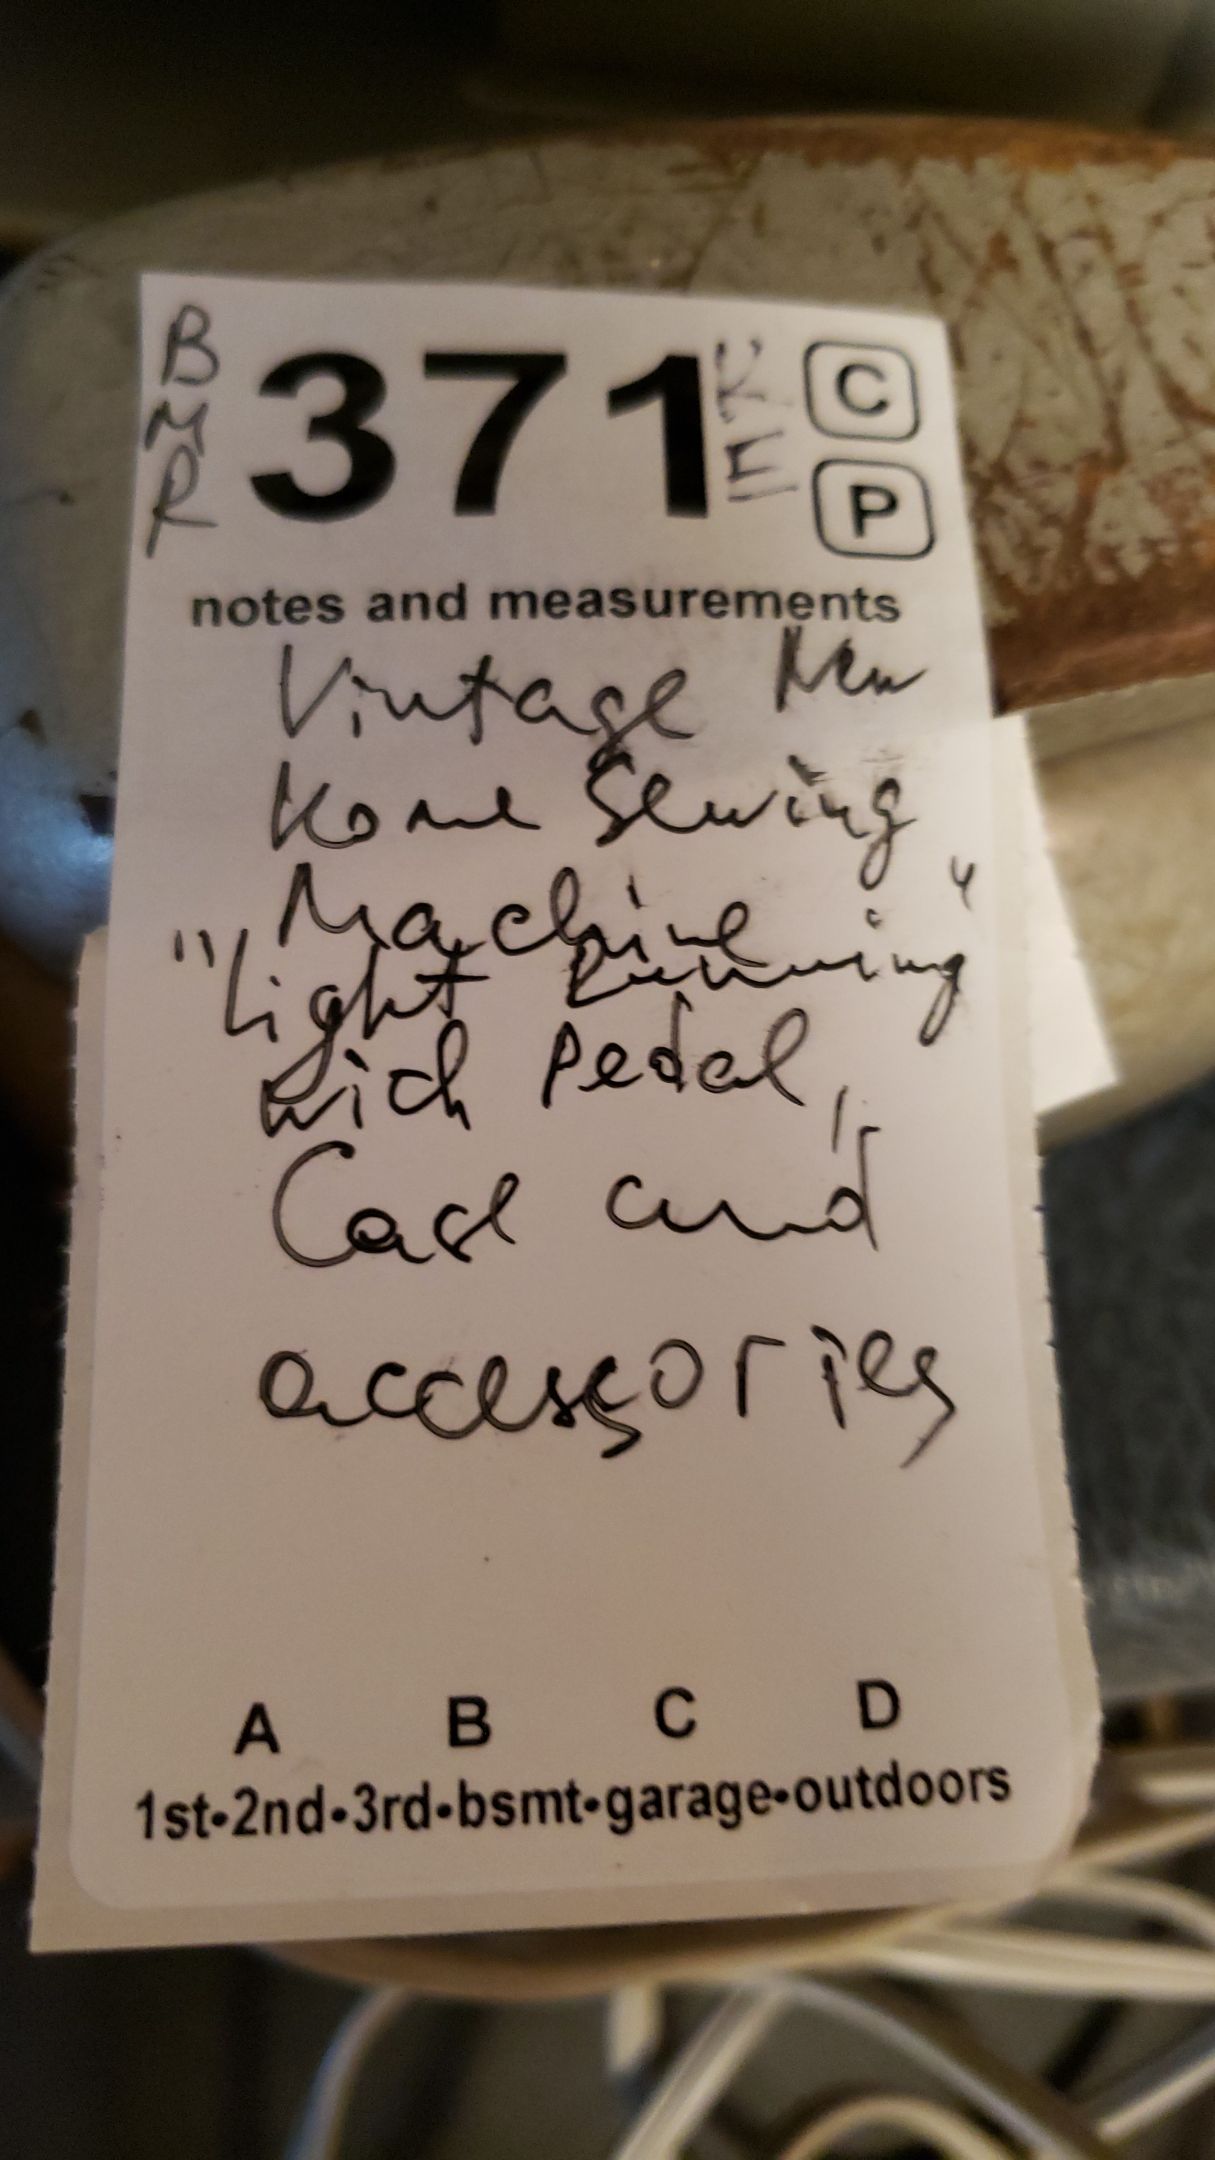 BMR 371 KE C
P
notes and measurements
Vintage New
Home Sewing
Machine
"Light Running"
with Pedal,
Case and
accessories
A B C D
1st•2nd•3rd•bsmt•garage•outdoors